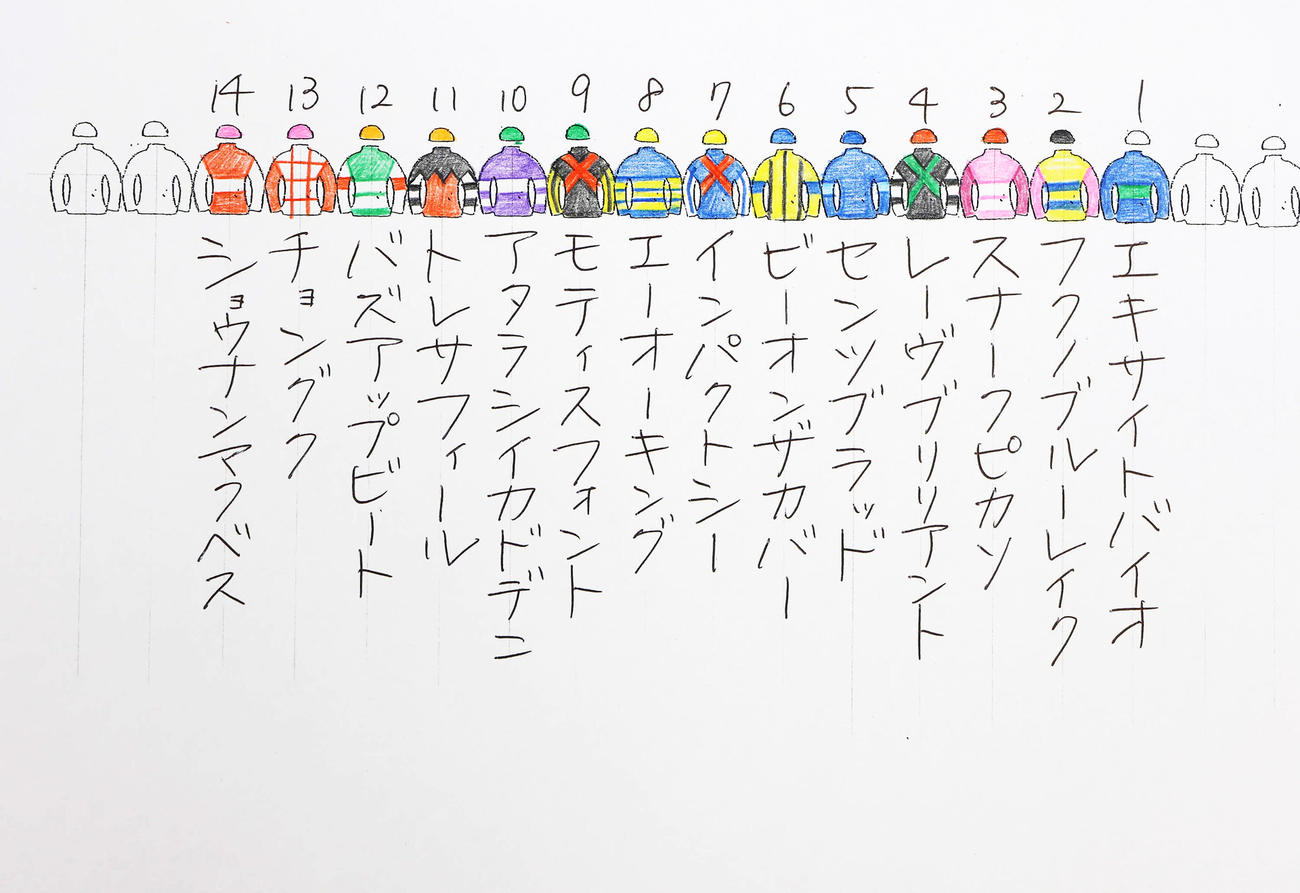 1 エキサイトバイオ
2 フクノブルーレイク
3 スナークピカソ
4 レーヴブリリアント
5 センツブラッド
6 ビーオンザカバー
7 インパクトシー
8 エーオーキング
9 モティスフォント
10 アタラシイカドデニ
11 トレサフィール
12 バズアップビート
13 チョングク
14 ショウナンマクベス